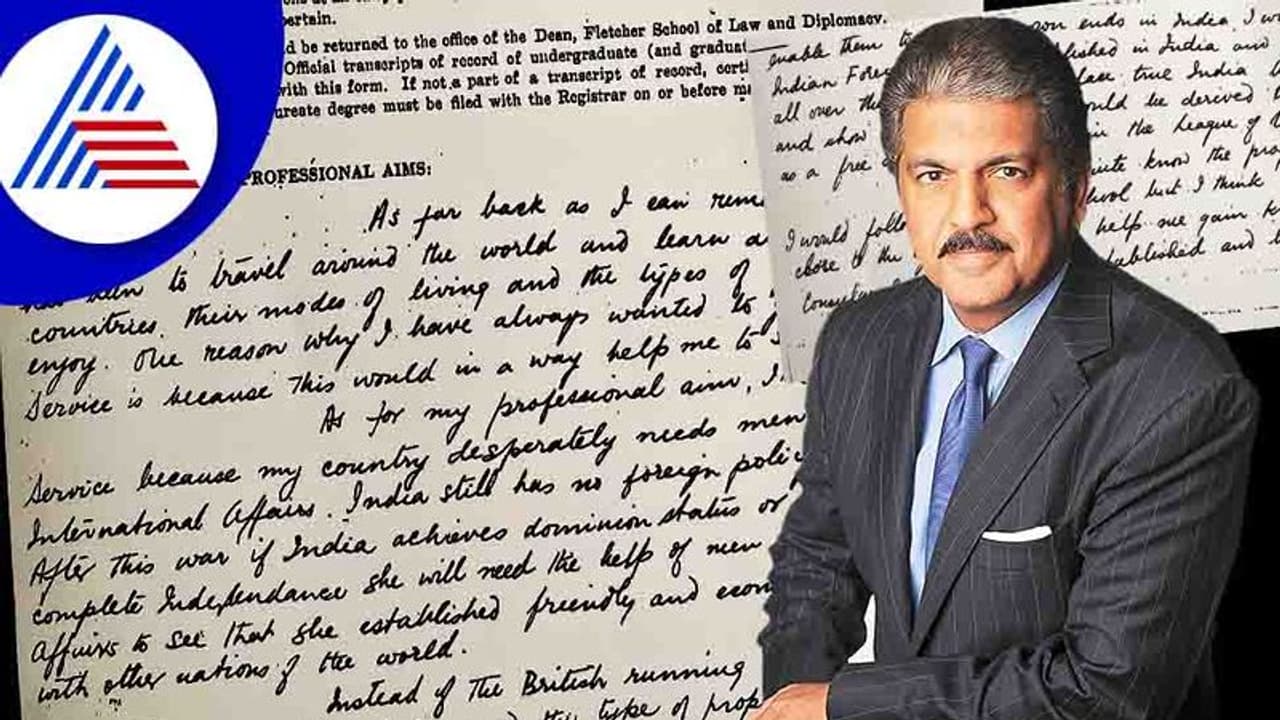 pertain.
d be returned to the office of the Dean, Fletcher School of Law and Diplomacy.
Official transcripts of record of undergraduate (and graduat
with this form. If not a part of a transcript of record, certi
ureate degree must be filed with the Registrar on or before
PROFESSIONAL AIMS:
As far back as I can rem
been to travel around the world and learn a
countries their modes of living and the types of
enjoy. One reason why I have always wanted to
Service is because this would in a way help me to
As for my professional aim, I
Service because my country desperately needs men
International Affairs. India still has no foreign polic
After this war if India achieves dominion status or
complete Independance she will need the help of men
Affairs to see that she established friendly and econ
with other nations of the world.
Instead of the British running
type of prop
ends in India I w
enable them to
blished in India and
Indian Fore
place true India
all over the
uld be derived
and show
in the League of
as a free
quite know the pro
ool but I think
I would foll
help me gain k
close to the
established and